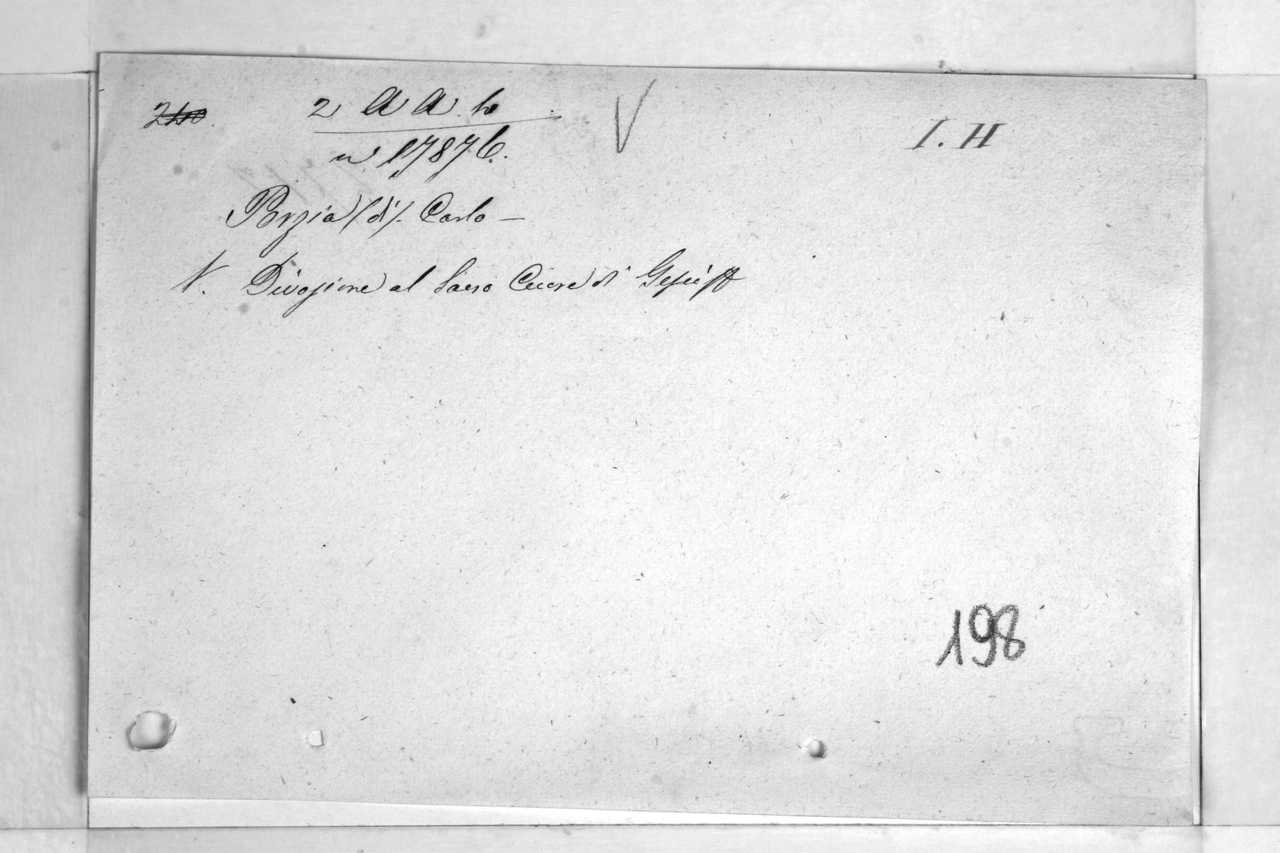 2 A A b
I. H
n. 17876.
Porzia (di). Carlo —
V. Divozione al Sacro Cuore di Gesù
198